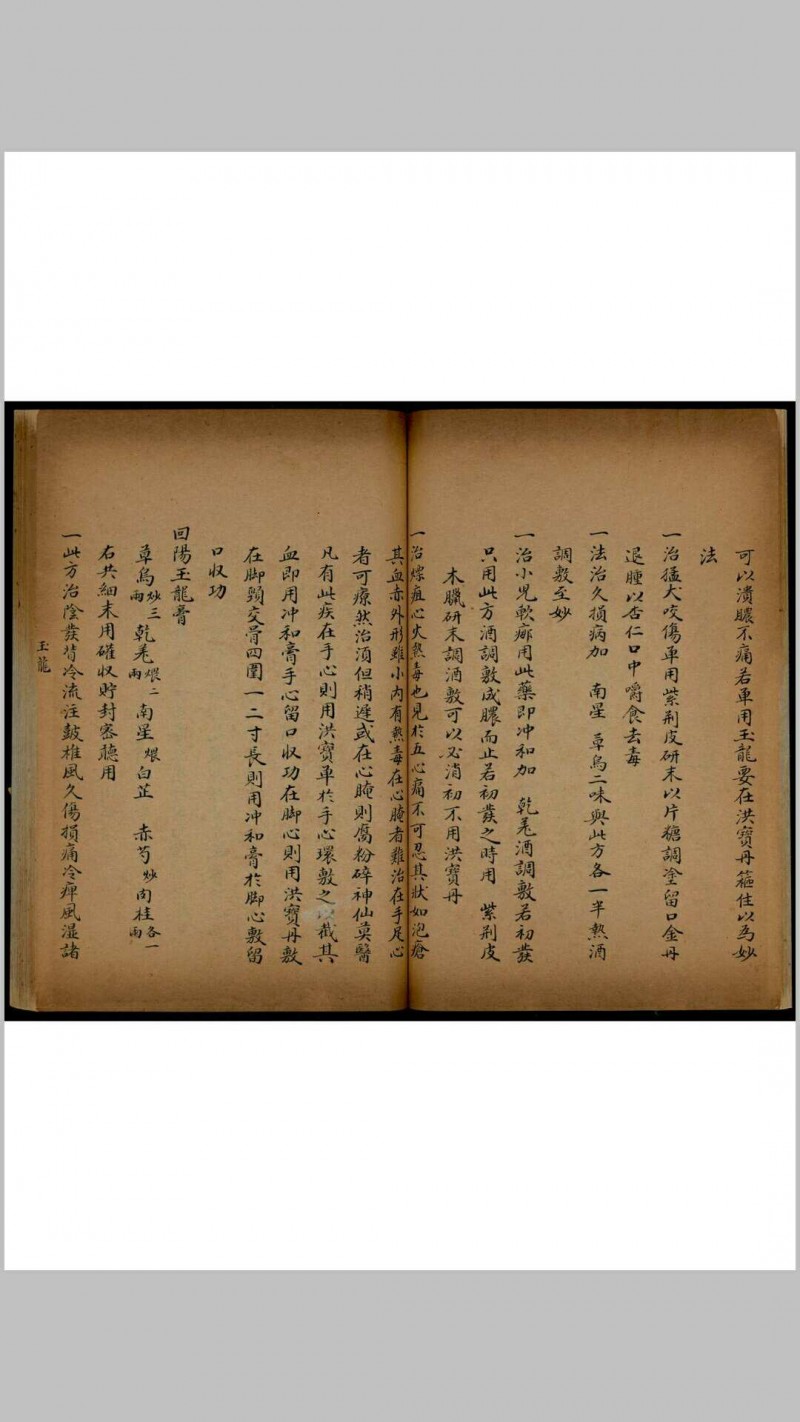 可以潰膿不痛若單用玉龍要在洪寶丹箍住以為妙
法
一治猛犬咬傷單用紫荆皮研末以片糖調塗留口金丹
退腫以杏仁口中嚼食去毒
一法治久損病加 南星 草烏二味與此方各一半熱酒
調敷至妙
一治小兒軟癤用此藥即冲和加 乾羌酒調敷若初發
只用此方酒調敷成膿而止若初發之時用 紫荆皮
木臘研末調酒敷可以必消初不用洪寶丹
一治瘭疽心火熱毒也見於五心痛不可忍其狀如泡瘡
其血赤外形雖小內有熱毒在心腌者難治在手足心
者可療然治須但稍遲或在心腌則腐粉碎神仙莫醫
凡有此疾在手心則用洪寶單於手心環敷之以截其
血即用冲和膏手心留口收功在脚心則用洪寶丹敷
在脚頸交骨四圍一二寸長則用冲和膏於脚心敷留
口收功
回陽玉龍膏
草烏炒三兩 乾羌煨二兩 南星煨 白芷 赤芍炒 肉桂各一兩
右共細末用磁収貯封密聽用
一此方治陰發背冷流注鼓椎風久傷損痛冷痺風湿諸
玉龍